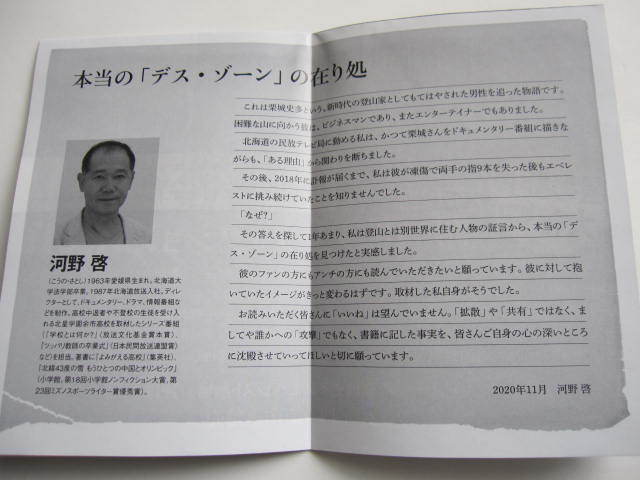 本当の「デス・ゾーン」の在り処
これは栗城史多という、新時代の登山家としてもてはやされた男性を追った物語です。
困難な山に向かう彼は、ビジネスマンであり、またエンターテイナーでもありました。
北海道の民放テレビ局に勤める私は、かつて栗城さんをドキュメンタリー番組に描きな
がらも、「ある理由」から関わりを断ちました。
その後、2018年に訃報が届くまで、私は彼が凍傷で両手の指9本を失った後もエベレ
ストに挑み続けていたことを知りませんでした。
「なぜ？」
その答えを探して1年あまり、私は登山とは別世界に住む人物の証言から、本当の「デ
ス・ゾーン」の在り処を見つけたと実感しました。
彼のファンの方にもアンチの方にも読んでいただきたいと願っています。彼に対して抱
いていたイメージがきっと変わるはずです。取材した私自身がそうでした。
お読みいただく皆さんに「いいね」は望んでいません。「拡散」や「共有」ではなく、ま
してや誰かへの「攻撃」でもなく、書籍に記した事実を、皆さんご自身の心の深いところ
に沈殿させていってほしいと切に願っています。
2020年11月　河野 啓
河野 啓
（こうの・さとし）1963年愛媛県生まれ。北海道大
学法学部卒業。1987年北海道放送入社。ディレ
クターとして、ドキュメンタリー、ドラマ、情報番組など
を制作。高校中退者や不登校の生徒を受け入
れる北星学園余市高校を取材したシリーズ番組
（『学校とは何か？』（放送文化基金賞本賞）、
『ツッパリ教師の卒業式』（日本民間放送連盟賞）
など）を担当。著書に『よみがえる高校』（集英社）、
『北緯43度の雪 もうひとつの中国とオリンピック』
（小学館。第18回小学館ノンフィクション大賞、第
23回ミズノスポーツライター賞優秀賞）。